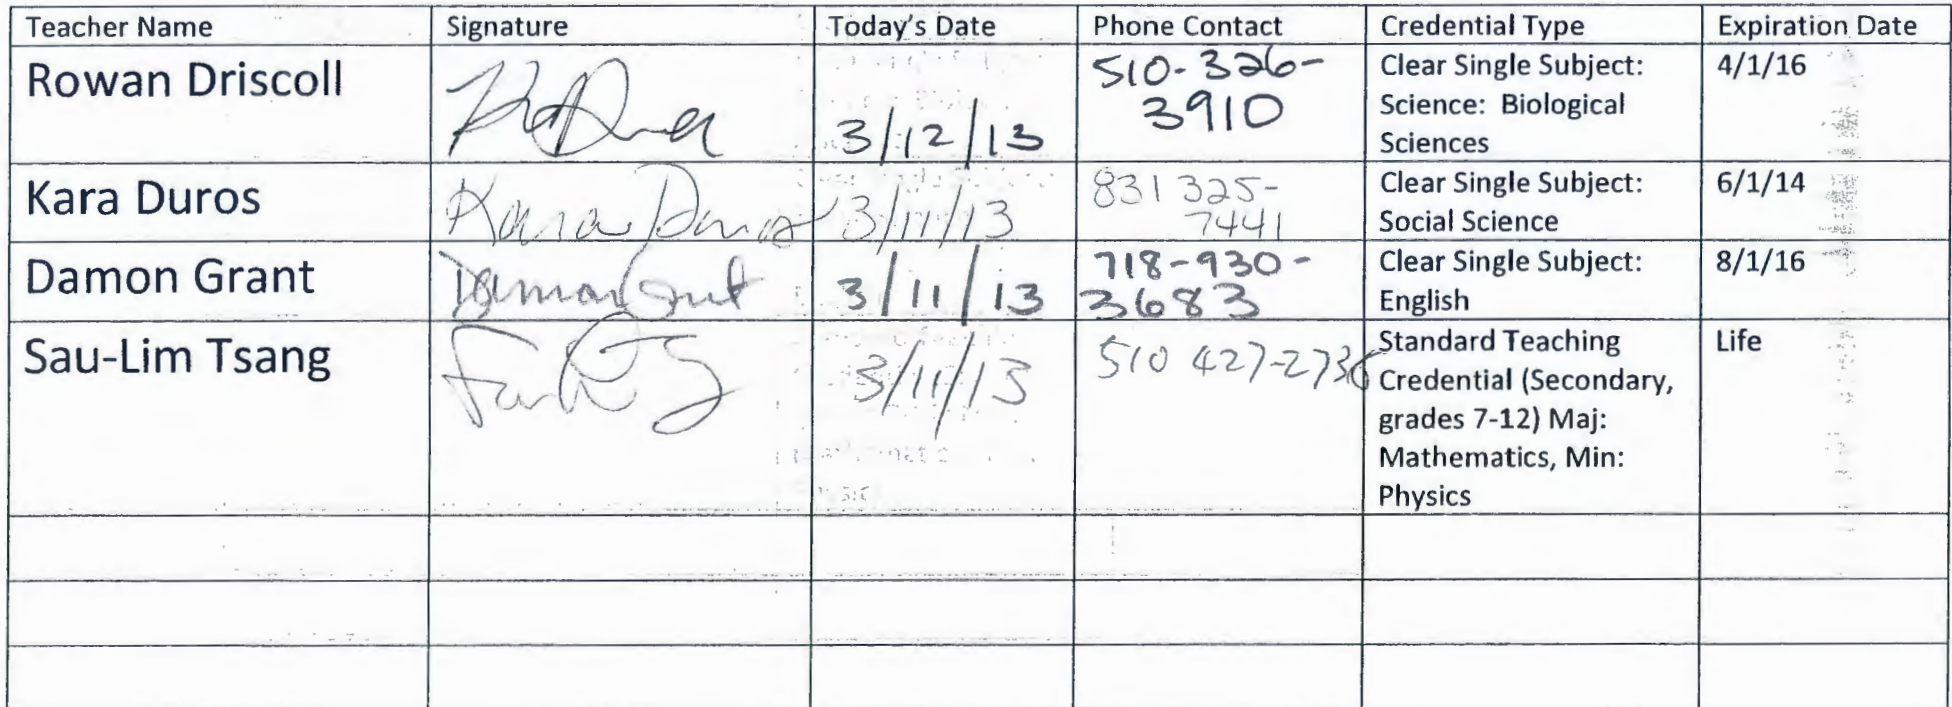 Teacher Name Signature Today's Date Phone Contact Credential Type Expiration Date
Rowan Driscoll 3/12/13 510-326- Clear Single Subject: 4/1/16
3910 Science: Biological
Sciences
Kara Duros Kara Duros 3/11/13 831 325- Clear Single Subject: 6/1/14
7441 Social Science
Damon Grant Damon Grant 3/11/13 718-930- Clear Single Subject: 8/1/16
3683 English
Sau-Lim Tsang 3/11/13 510 427-2736 Standard Teaching Life
Credential (Secondary,
grades 7-12) Maj:
Mathematics, Min:
Physics